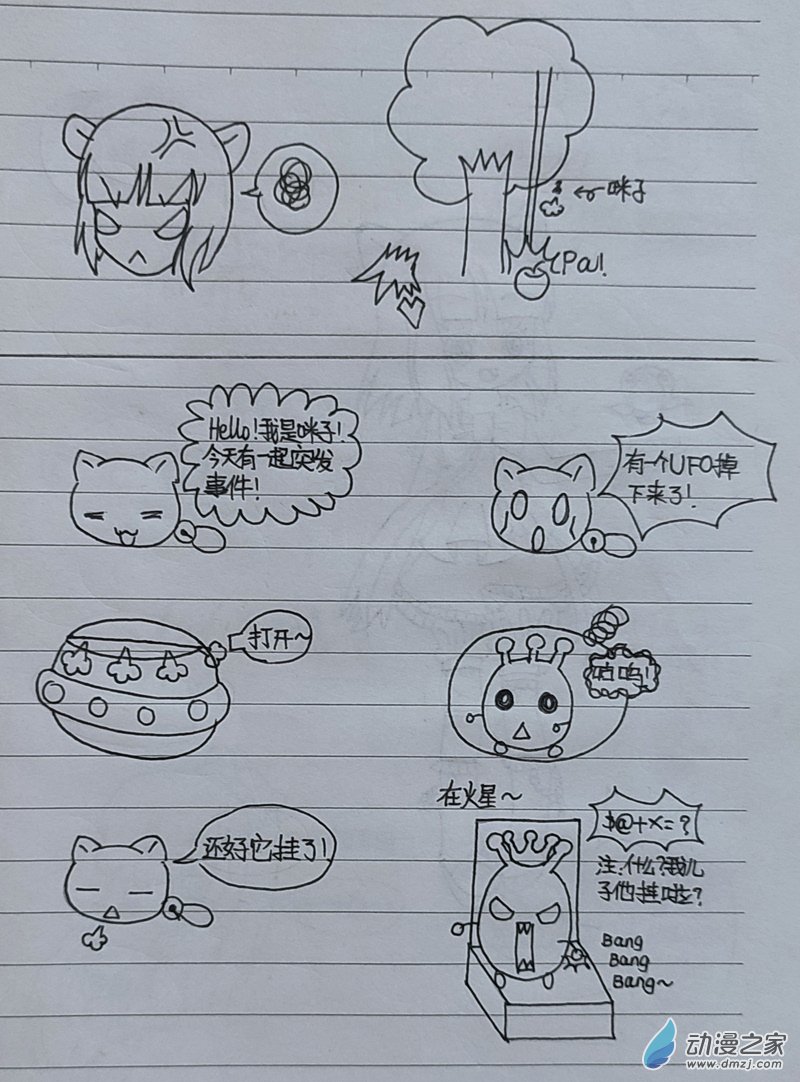 ←咪子
Pa!
Hello!我是咪子!
今天有一起突发
事件!
有一个UFO掉
下来了!
打开~
呜!
在火星~
$@+X=?
还好它挂了!
注:什么?我儿
子他挂啦?
Bang
Bang
Bang~
动漫之家
www.dmzj.com